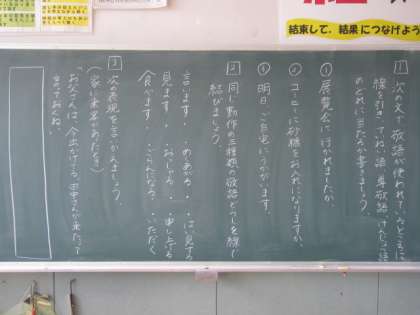 結束して、結果につなげよう
1 次の文で敬語が使われているところに
線を引き、ていねい語、尊敬語、けんじょう語
のどれに当たるか書きましょう。
① 展覧会に行かれましたか。
② コーヒーに砂糖をお入れになりますか。
③ 明日、ご自宅にうかがいます。
2 同じ動作の三種類の敬語どうしを線で
結びましょう。
言います・ ・めしあがる・ ・はい見する
見ます・ ・おっしゃる・ ・申し上げる
食べます・ ・ごらんになる・ ・いただく
3 次の表現を言いかえましょう。
(家に来客があったとき)
「お父さんは、今出かけてる。田中さんが来たって
言っておくね。」